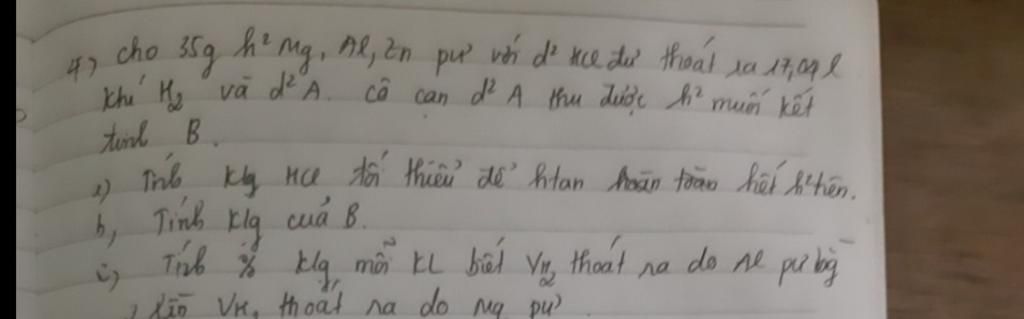 4) cho 35g h² Mg, Al, Zn pư với d² HCl dư thoát ra 17,04 l
khí H2 và d² A. cô cạn d² A thu được h² muối kết
tinh B.
a) Tính klg HCl tối thiểu để htan hoàn toàn hết h² trên.
b, Tính klg của B.
c) Tính % klg mỗi KL biết VH2 thoát ra do Al pư bằg
lần VH2 thoát ra do Mg pư